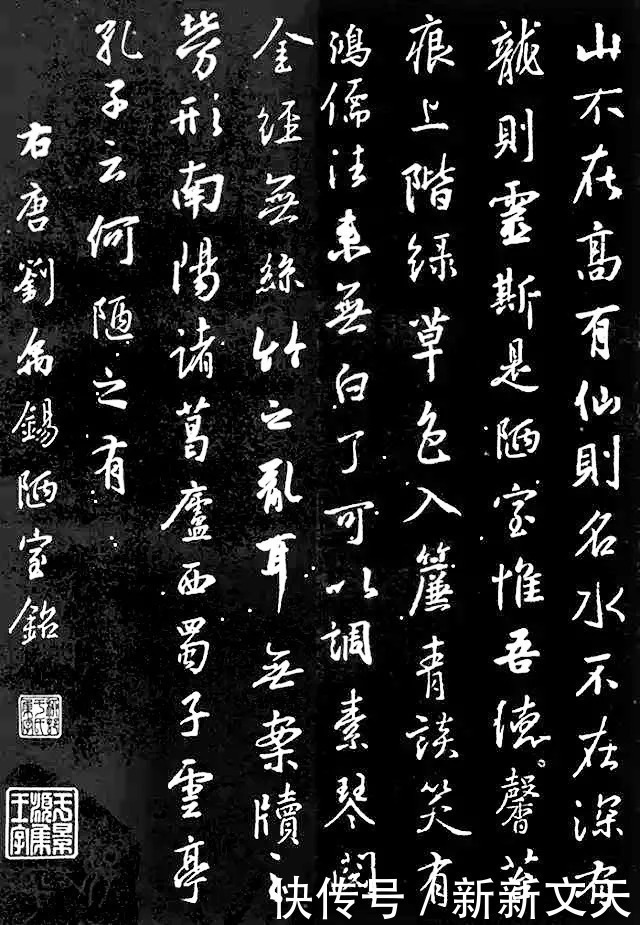 山不在高有仙則名水不在深有
龍則靈斯是陋室惟吾德馨苔
痕上階緑草色入簾青談笑有
鴻儒往来無白丁可以調素琴閱
金經無絲竹之亂耳無案牘之
勞形南陽諸葛廬西蜀子雲亭
孔子云何陋之有
右唐劉禹錫陋室銘
快传号 新新文天